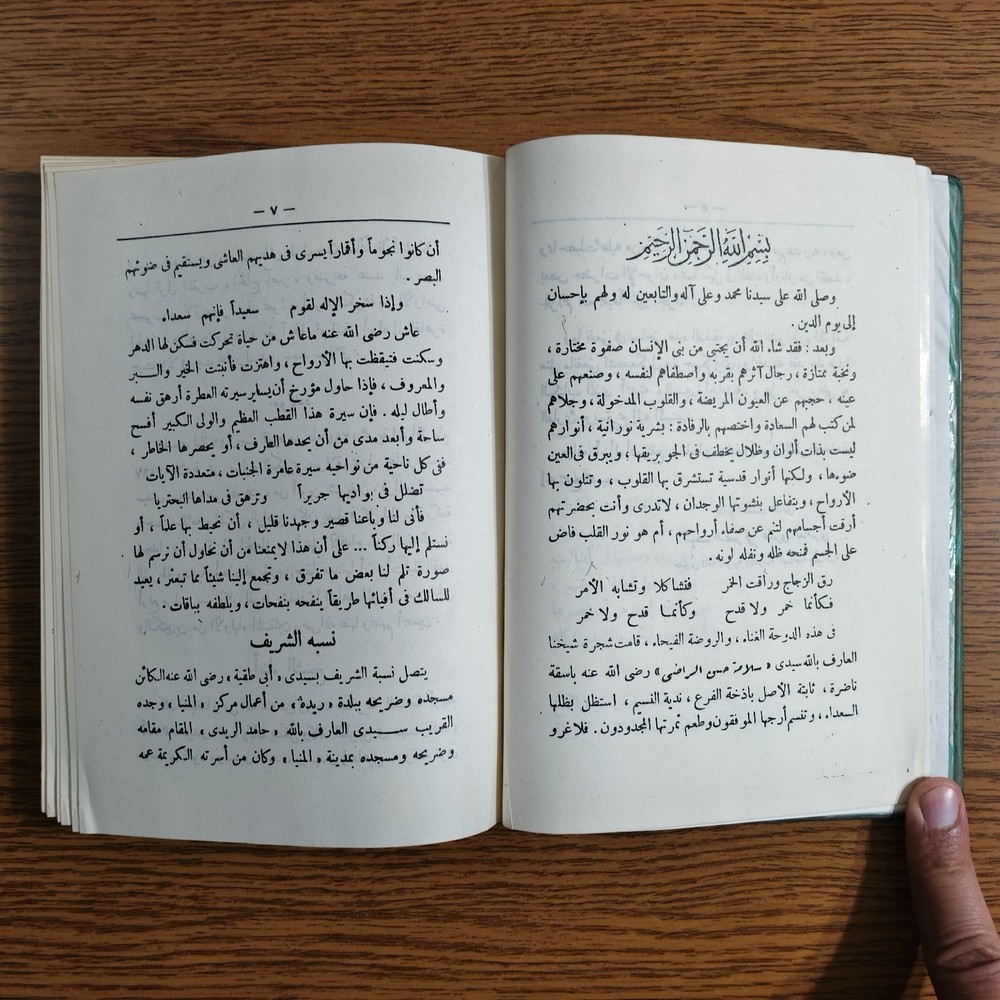 بِسْمِ اللَّهِ الرَّحْمَنِ الرَّحِيمِ
وصلى الله على سيدنا محمد وعلى آله والتابعين له ولهم بإحسان
إلى يوم الدين .
وبعد : فقد شاء الله أن يجتبى من بنى الإنسان صفوة مختارة ،
ونخبة ممتازة ، رجال آثرهم بقربه واصطفاهم لنفسه ، وصنعهم على
عينه ، حجبهم عن العيون المريضة ، والقلوب المدخولة ، وجلاهم
لمن كتب لهم السعادة واختصهم بالرفادة : بشرية نورانية ، أنوارهم
ليست بذات ألوان وظلال يخطف فى الجو بريقها ، ويبرق فى العين
ضوءها ، ولكنها أنوار قدسية تستشرق بها القلوب ، وتتلون بها
الأرواح ، ويتفاعل بنشوتها الوجدان ، لاتدرى وأنت بحضرتهم
أرقت أجسامهم لتنم عن صفاء أرواحهم ، أم هو نور القلب فاض
على الجسم فمنحه ظله ونفله لونه .
رق الزجاج وراقت الخمر فتشاكلا وتشابه الأمر
فكأنما خمر ولا قدح وكأنما قدح ولا خمر
فى هذه الدوحة الغناء ، والروضة الفيحاء ، قامت شجرة شيخنا
العارف بالله سيدى « سلامة حسن الراضى » رضى الله عنه باسقة
ناضرة ، ثابتة الأصل باذخة الفرع ، ندية النسيم ، استظل بظلها
السعداء ، وتنسم أرجها الموفقون وطعم ثمرتها المجدودون . فلا غرو
— ٧ —
أن كانوا نجوماً وأقماراً يسرى فى هديهم العاشى ويستقيم فى ضوئهم
البصر .
وإذا سخر الإله لقوم سعيداً فإنهم سعداء
عاش رضى الله عنه ماعاش من حياة تحركت فسكن لها الدهر
وسكنت فتيقظت بها الأرواح ، واهتزت فأنبتت الخير والــبر
والمعروف ، فإذا حاول مؤرخ أن يساير سيرته العطرة أرهق نفسه
وأطال ليله . فإن سيرة هذا القطب العظيم والولى الكبير أفسح
ساحة وأبعد مدى من أن يحدها الطرف ، أو يحصرها الخاطر ،
ففى كل ناحية من نواحيه سيرة عامرة الجنبات ، متعددة الآيات
تضلل فى بواديها جريراً وترهق فى مداها البحتريا
فأنى لنا وباعنا قصير وجهدنا قليل ، أن نحيط بها علماً ، أو
نستلم إليها ركناً ... على أن هذا لايمنعنا من أن نحاول أن نرسم لها
صورة تلم لنا بعض ما تفرق ، وتجمع إلينا شيئاً مما تبعثر ، يعيد
للسالك فى أفيائها طريقاً ينفحه بنفحات ، ويلطفه بباقات .
نسبه الشريف
يتصل نسبة الشريف بسيدى « أبى طقية » رضى الله عنه الكائن
مسجده وضريحه ببلدة « ريدة » من أعمال مركز « المنيا » وجده
القريب ســيدى العارف بالله « حامد الريدى » المقام مقامه
وضريحه ومسجده بمدينة « المنيا » وكان من أسرته الكريمة عمه